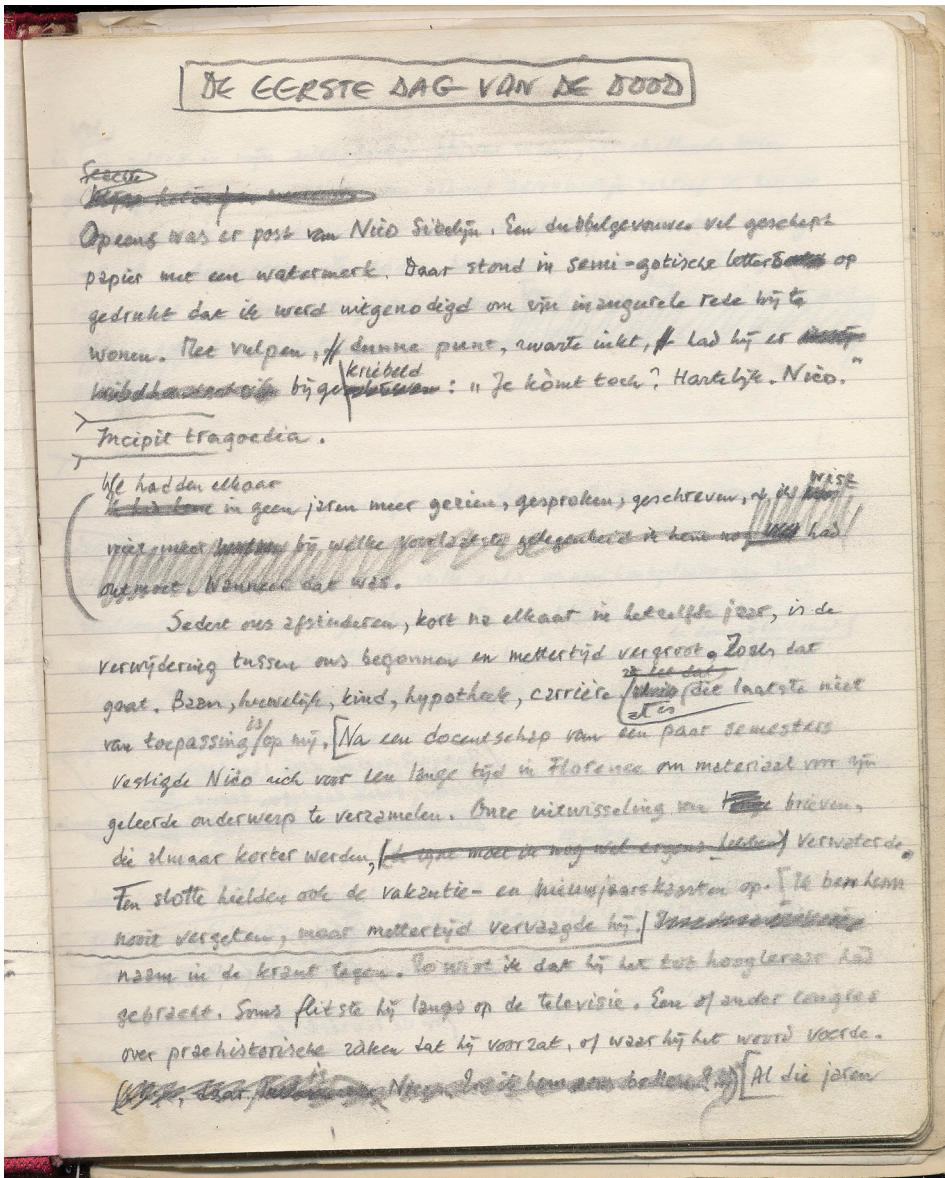 DE EERSTE DAG VAN DE DOOD
Opeens was er post van Nico Sibelijn. Een dubbelgevouwen vel geschept
papier met een watermerk. Daar stond in semi-gotische letters op
gedrukt dat ik werd uitgenodigd om zijn inaugurele rede bij te
wonen. Met vulpen, dunne punt, zwarte inkt, had hij er
kriebeld
bijge : "Je kòmt toch? Hartelijk. Nico."
Incipit tragoedia.
We hadden elkaar
in geen jaren meer gezien, gesproken, geschreven, ik wist
niet meer bij welke voorlaatste gelegenheid ik hem had
ontmoet. Wanneer dat was.
Sedert ons afstuderen, kort na elkaar in hetzelfde jaar, is de
verwijdering tussen ons begonnen en mettertijd vergroot. Zoals dat
gaat. Baan, huwelijk, kind, hypotheek, carrière (dit laatste niet
van toepassing is op mij. [Na een docentschap van een paar semesters
vestigde Nico zich voor een lange tijd in Florence om materiaal voor zijn
geleerde onderwerp te verzamelen. Onze uitwisseling van brieven,
die almaar korter werden, (de zijne moet ik nog wel ergens hebben) verwaterde.
Ten slotte hielden ook de vakantie- en nieuwjaarskaarten op. [Ik ben hem
nooit vergeten, maar mettertijd vervaagde hij.
naam in de krant tegen. Zo wist ik dat hij het tot hoogleraar had
gebracht. Soms flitste hij langs op de televisie. Een of ander congres
over praehistorische zaken dat hij voorzat, of waar hij het woord voerde.
Nico. Zal ik hem eens bellen?..) [Al die jaren